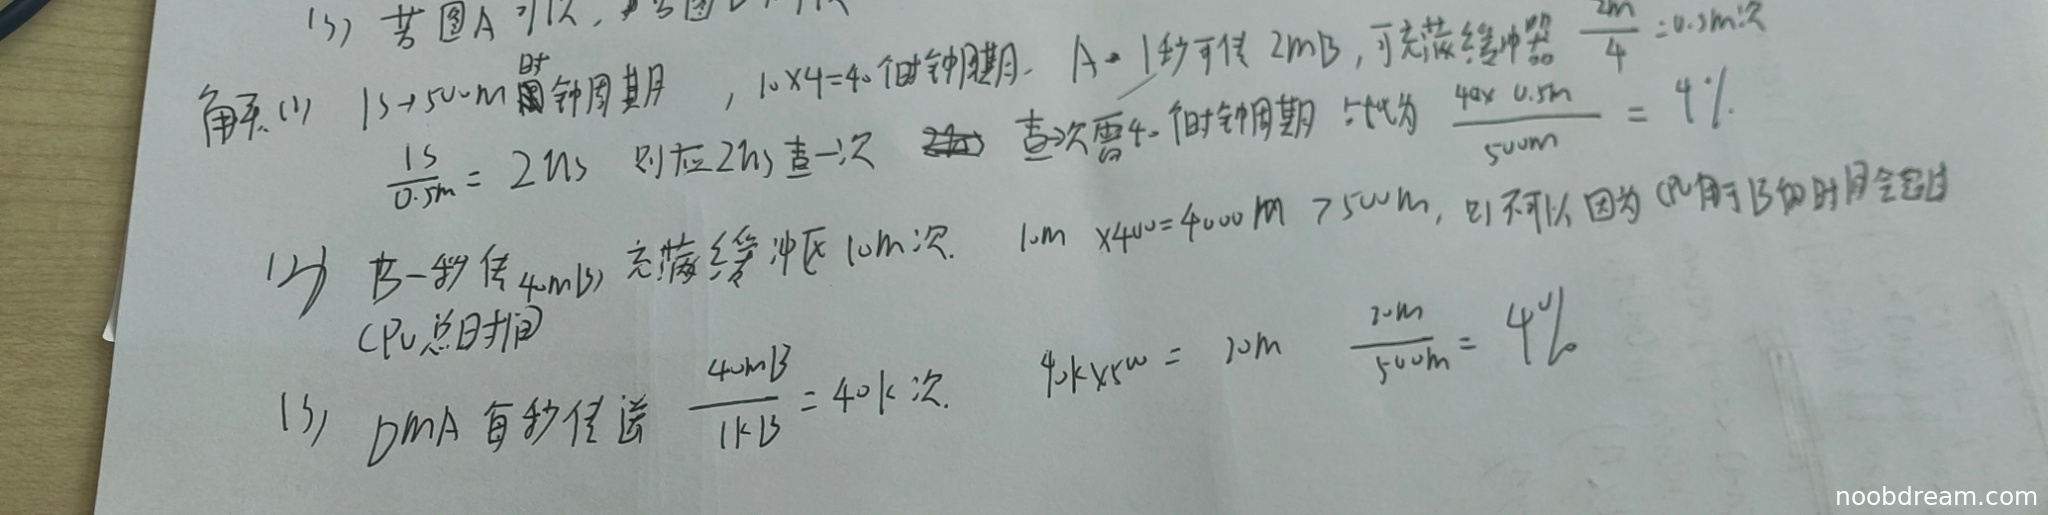 (3) 若图A可以,
解(1) 1s→500M时钟周期 , 10×4=40个时钟周期. A 1秒可传 2MB, 可充满缓冲器 2M/4 =0.5M次
1s/0.5M = 2us 则应2us查一次 查一次需40个时钟周期 占比为 40×0.5M/500M = 4%
(2) B一秒传40MB, 充满缓冲区10M次. 10M ×400=4000M >500M, 则不可以因为CPU用于B的时间会超过
CPU总时间
(3) DMA每秒传送 40MB/1KB =40K次. 40K×500 = 20M 20M/500M = 4%
noobdream.com